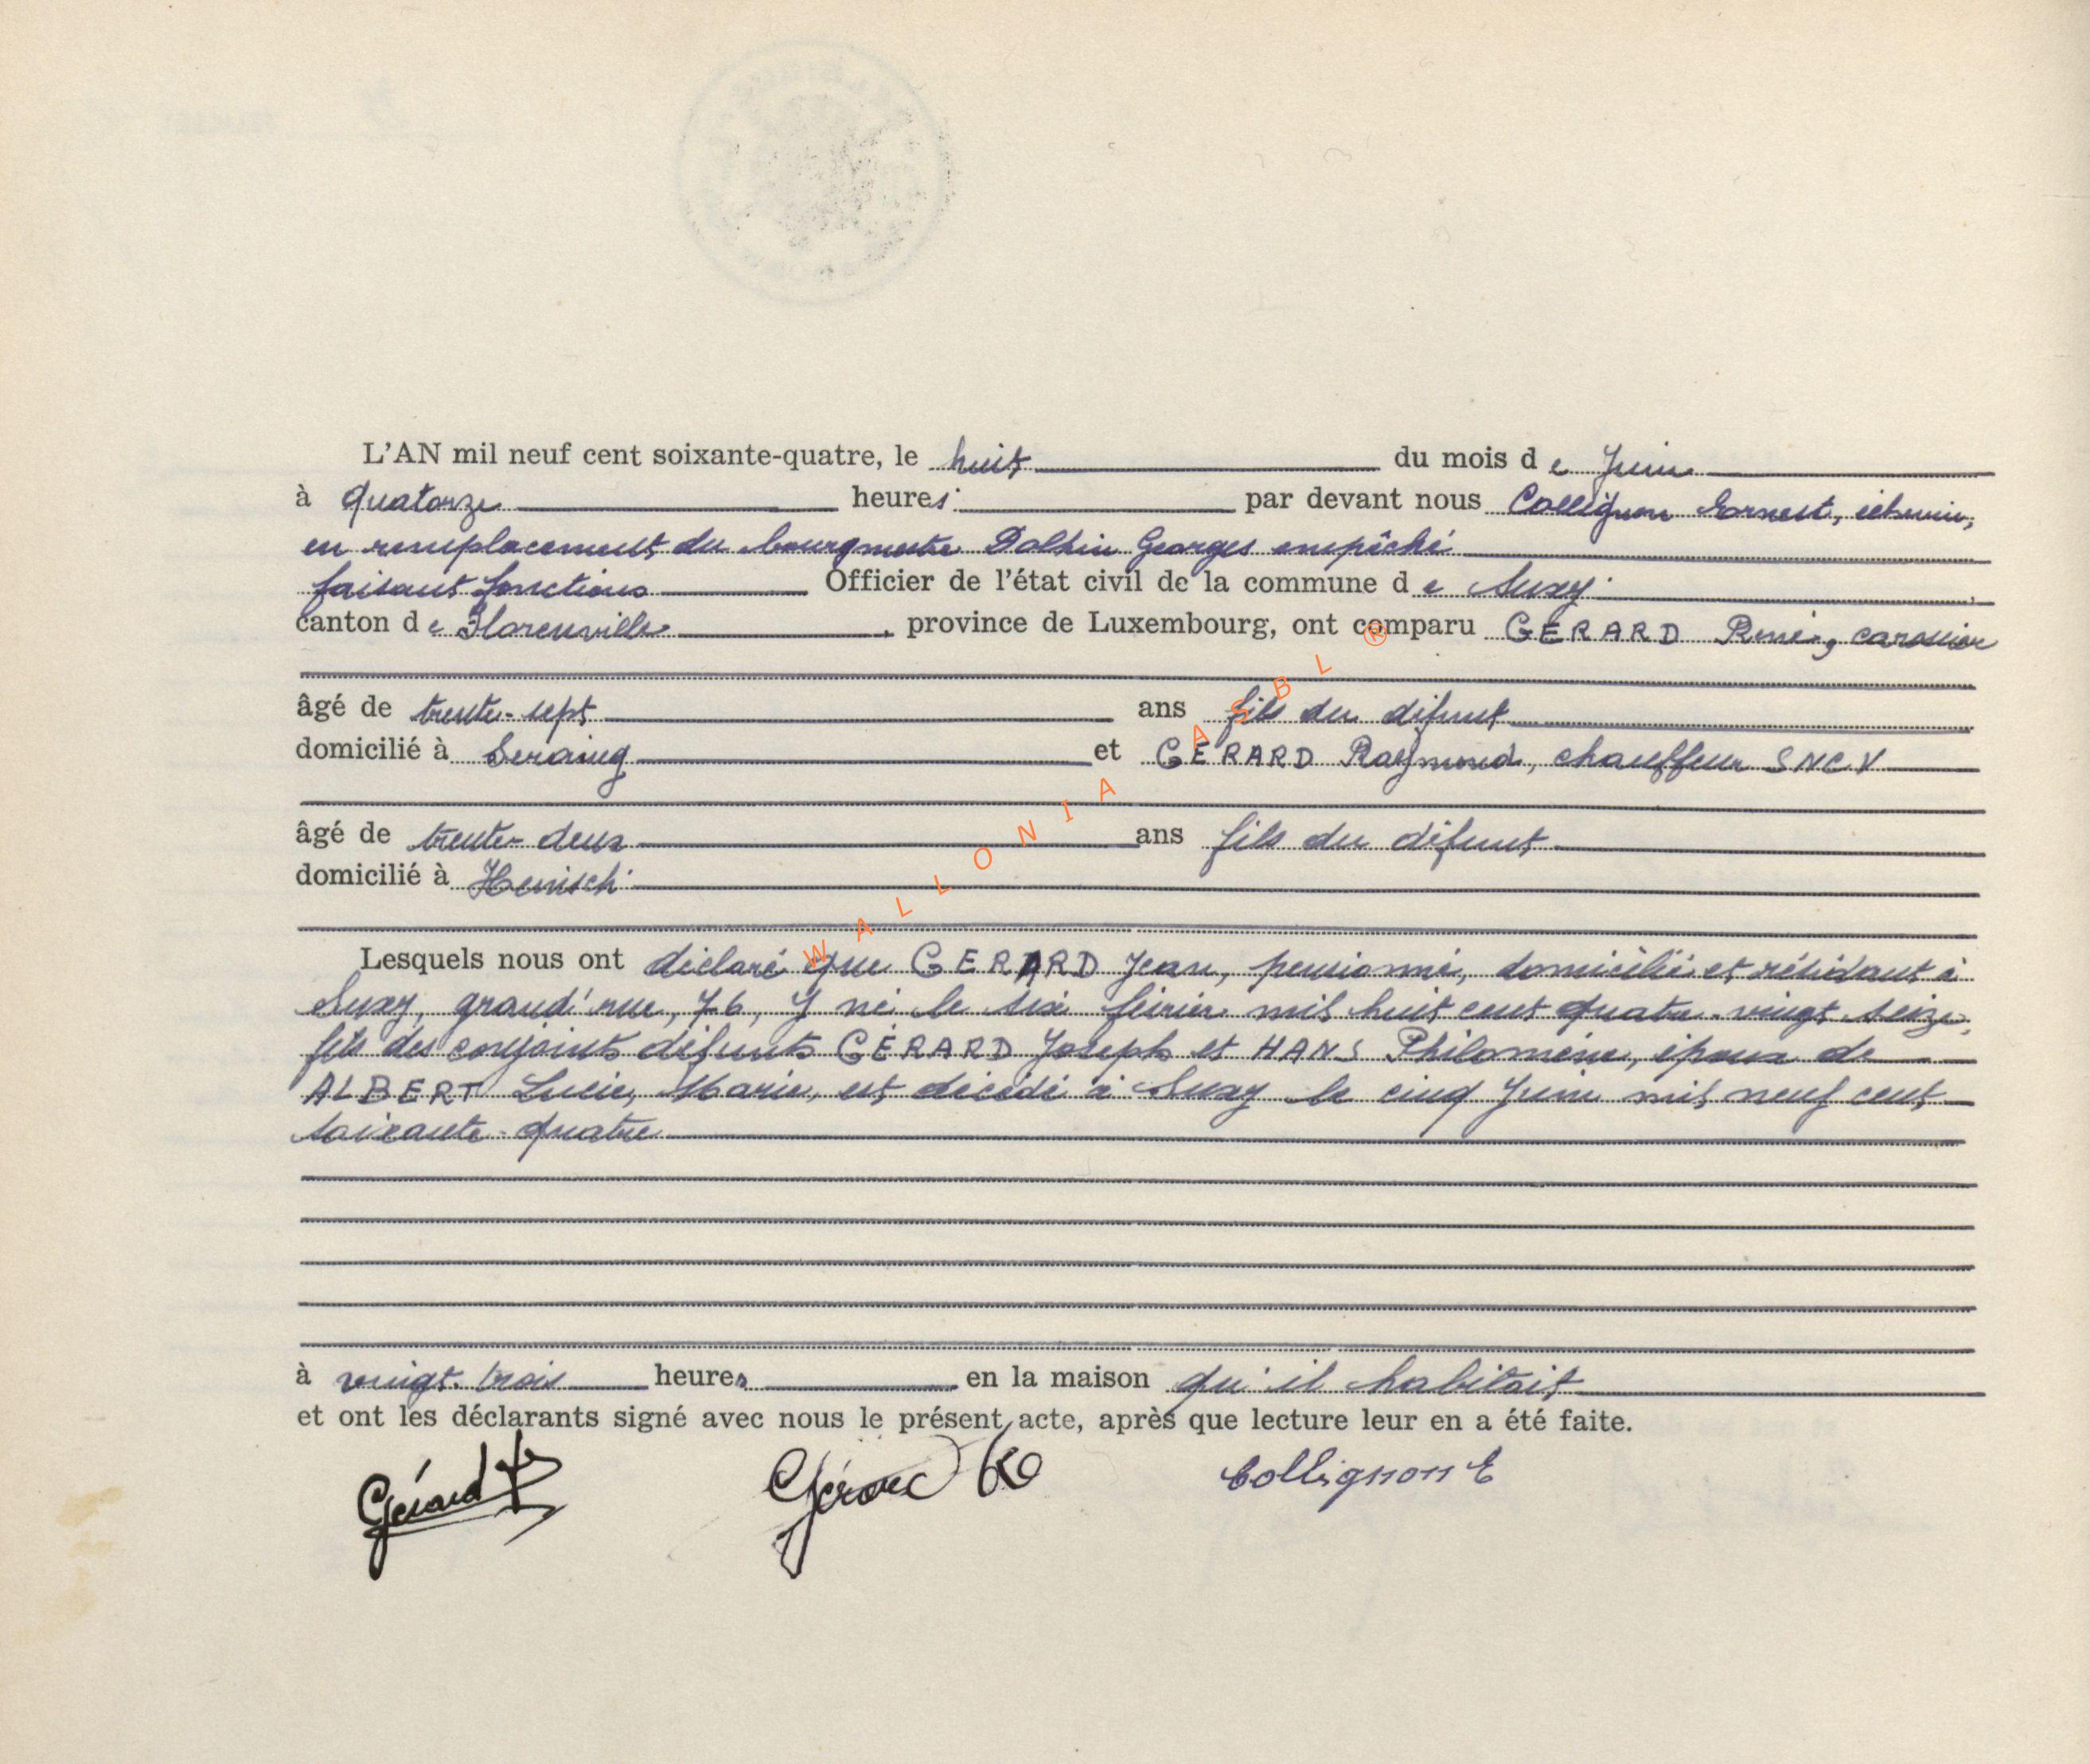 L'AN mil neuf cent soixante-quatre, le huit du mois de Juin
à quatorze heures par devant nous Collignon Ernest, échevin,
en remplacement du bourgmestre Dolhin Georges empêché
faisant fonctions Officier de l'état civil de la commune de Suxy
canton de Florenville, province de Luxembourg, ont comparu GÉRARD René, carossier
âgé de trente-sept ans fils du défunt
domicilié à Seraing et GÉRARD Raymond, chauffeur SNCV
âgé de trente-deux ans fils du défunt
domicilié à Hensch
Lesquels nous ont déclaré que GERARD Jean, pensionné, domicilié et résidant à
Suxy, grand'rue, 76, y né le six février mil huit cent quatre-vingt seize,
fils des conjoints défunts GÉRARD Joseph et HANS Philomène, époux de
ALBERT Lucie, Marie, est décédé à Suxy le cinq Juin mil neuf cent
soixante-quatre
à vingt-trois heures en la maison qu'il habitait
et ont les déclarants signé avec nous le présent acte, après que lecture leur en a été faite.
Gérard Gérard Collignon E
WALLONIA ASBL ®